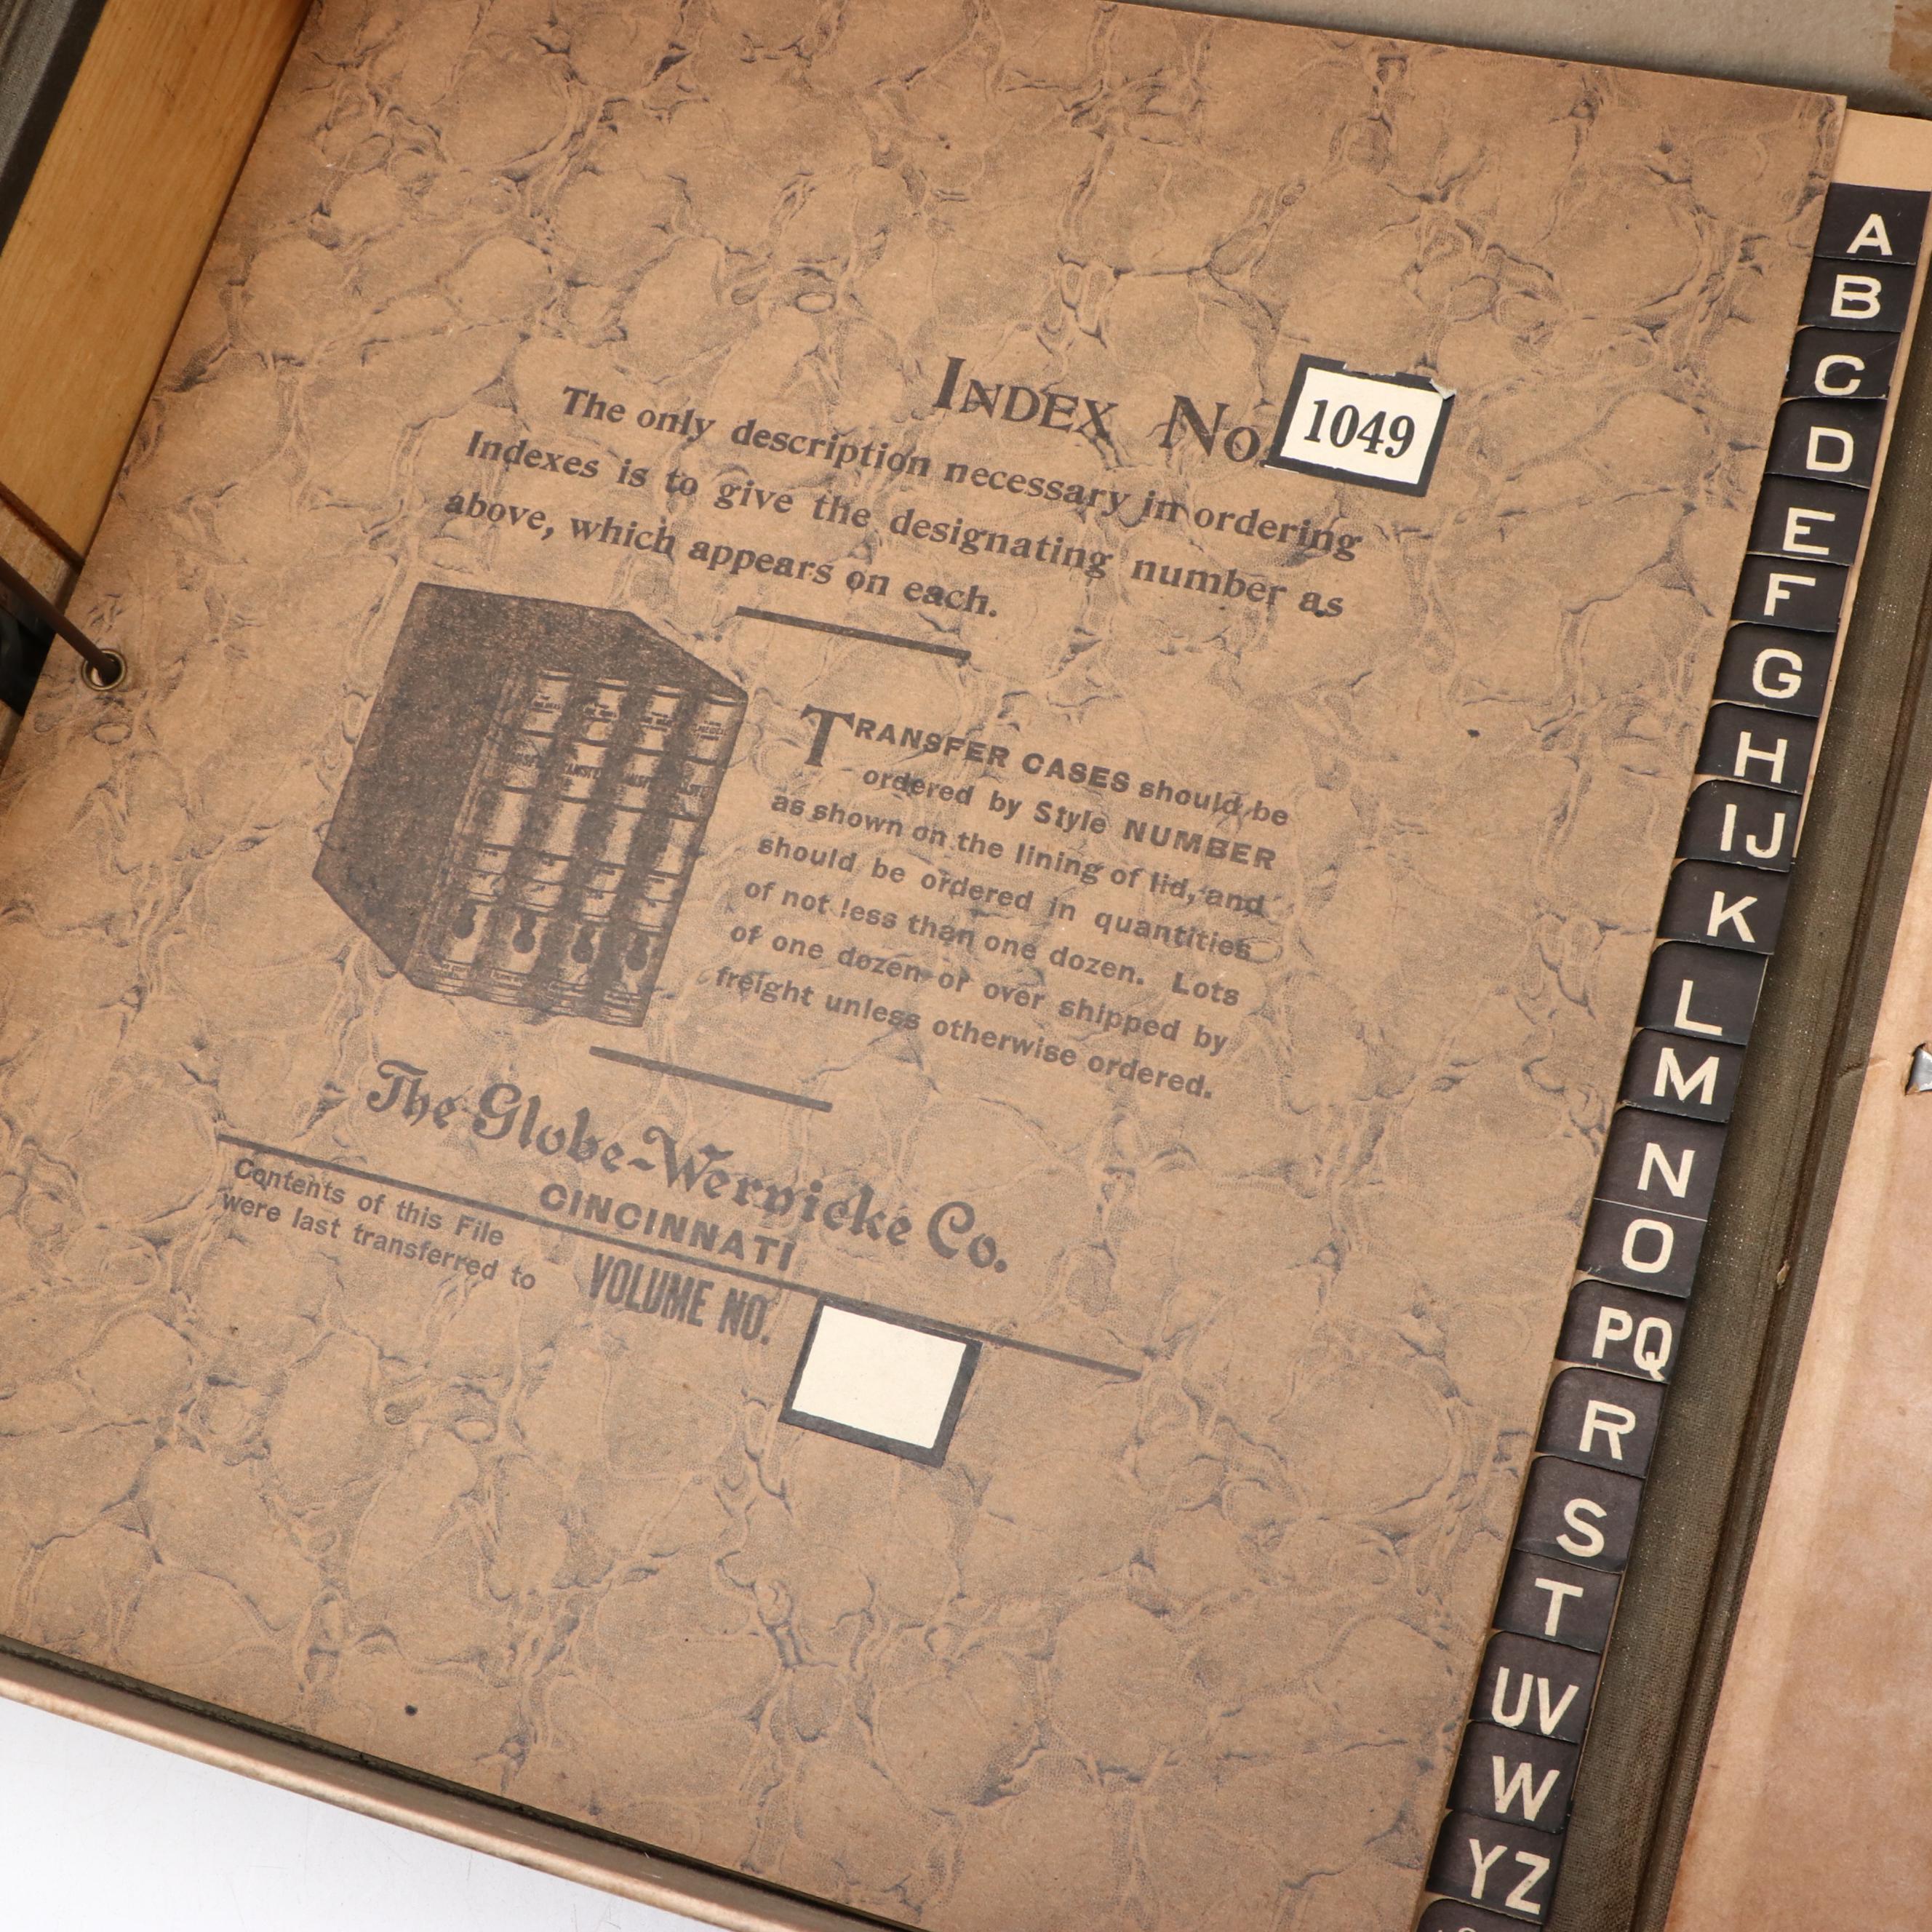 INDEX No. 1049
The only description necessary in ordering
Indexes is to give the designating number as
above, which appears on each.
TRANSFER CASES should be
ordered by Style NUMBER
as shown on the lining of lid, and
should be ordered in quantities
of not less than one dozen. Lots
of one dozen or over shipped by
freight unless otherwise ordered.
The Globe-Wernicke Co.
CINCINNATI
Contents of this File
were last transferred to
VOLUME NO.
A
B
C
D
E
F
G
H
IJ
K
L
M
N
O
PQ
R
S
T
UV
W
YZ